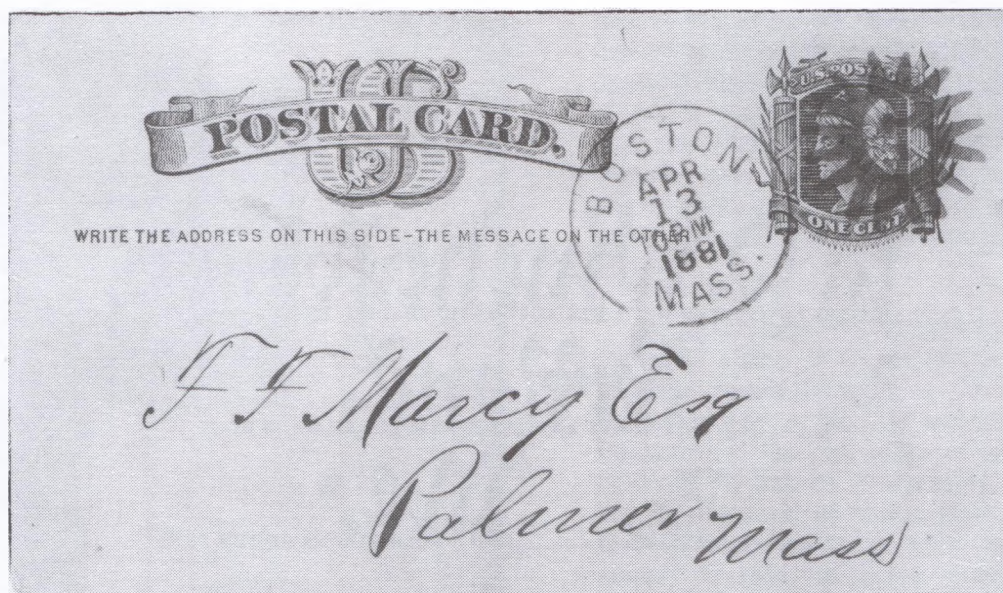 US
POSTAL CARD.
U.S. POSTAGE
ONE CENT
WRITE THE ADDRESS ON THIS SIDE-THE MESSAGE ON THE OTHER
BOSTON
APR
13
10 PM
1881
MASS.
F F Marcy Esq
Palmer Mass